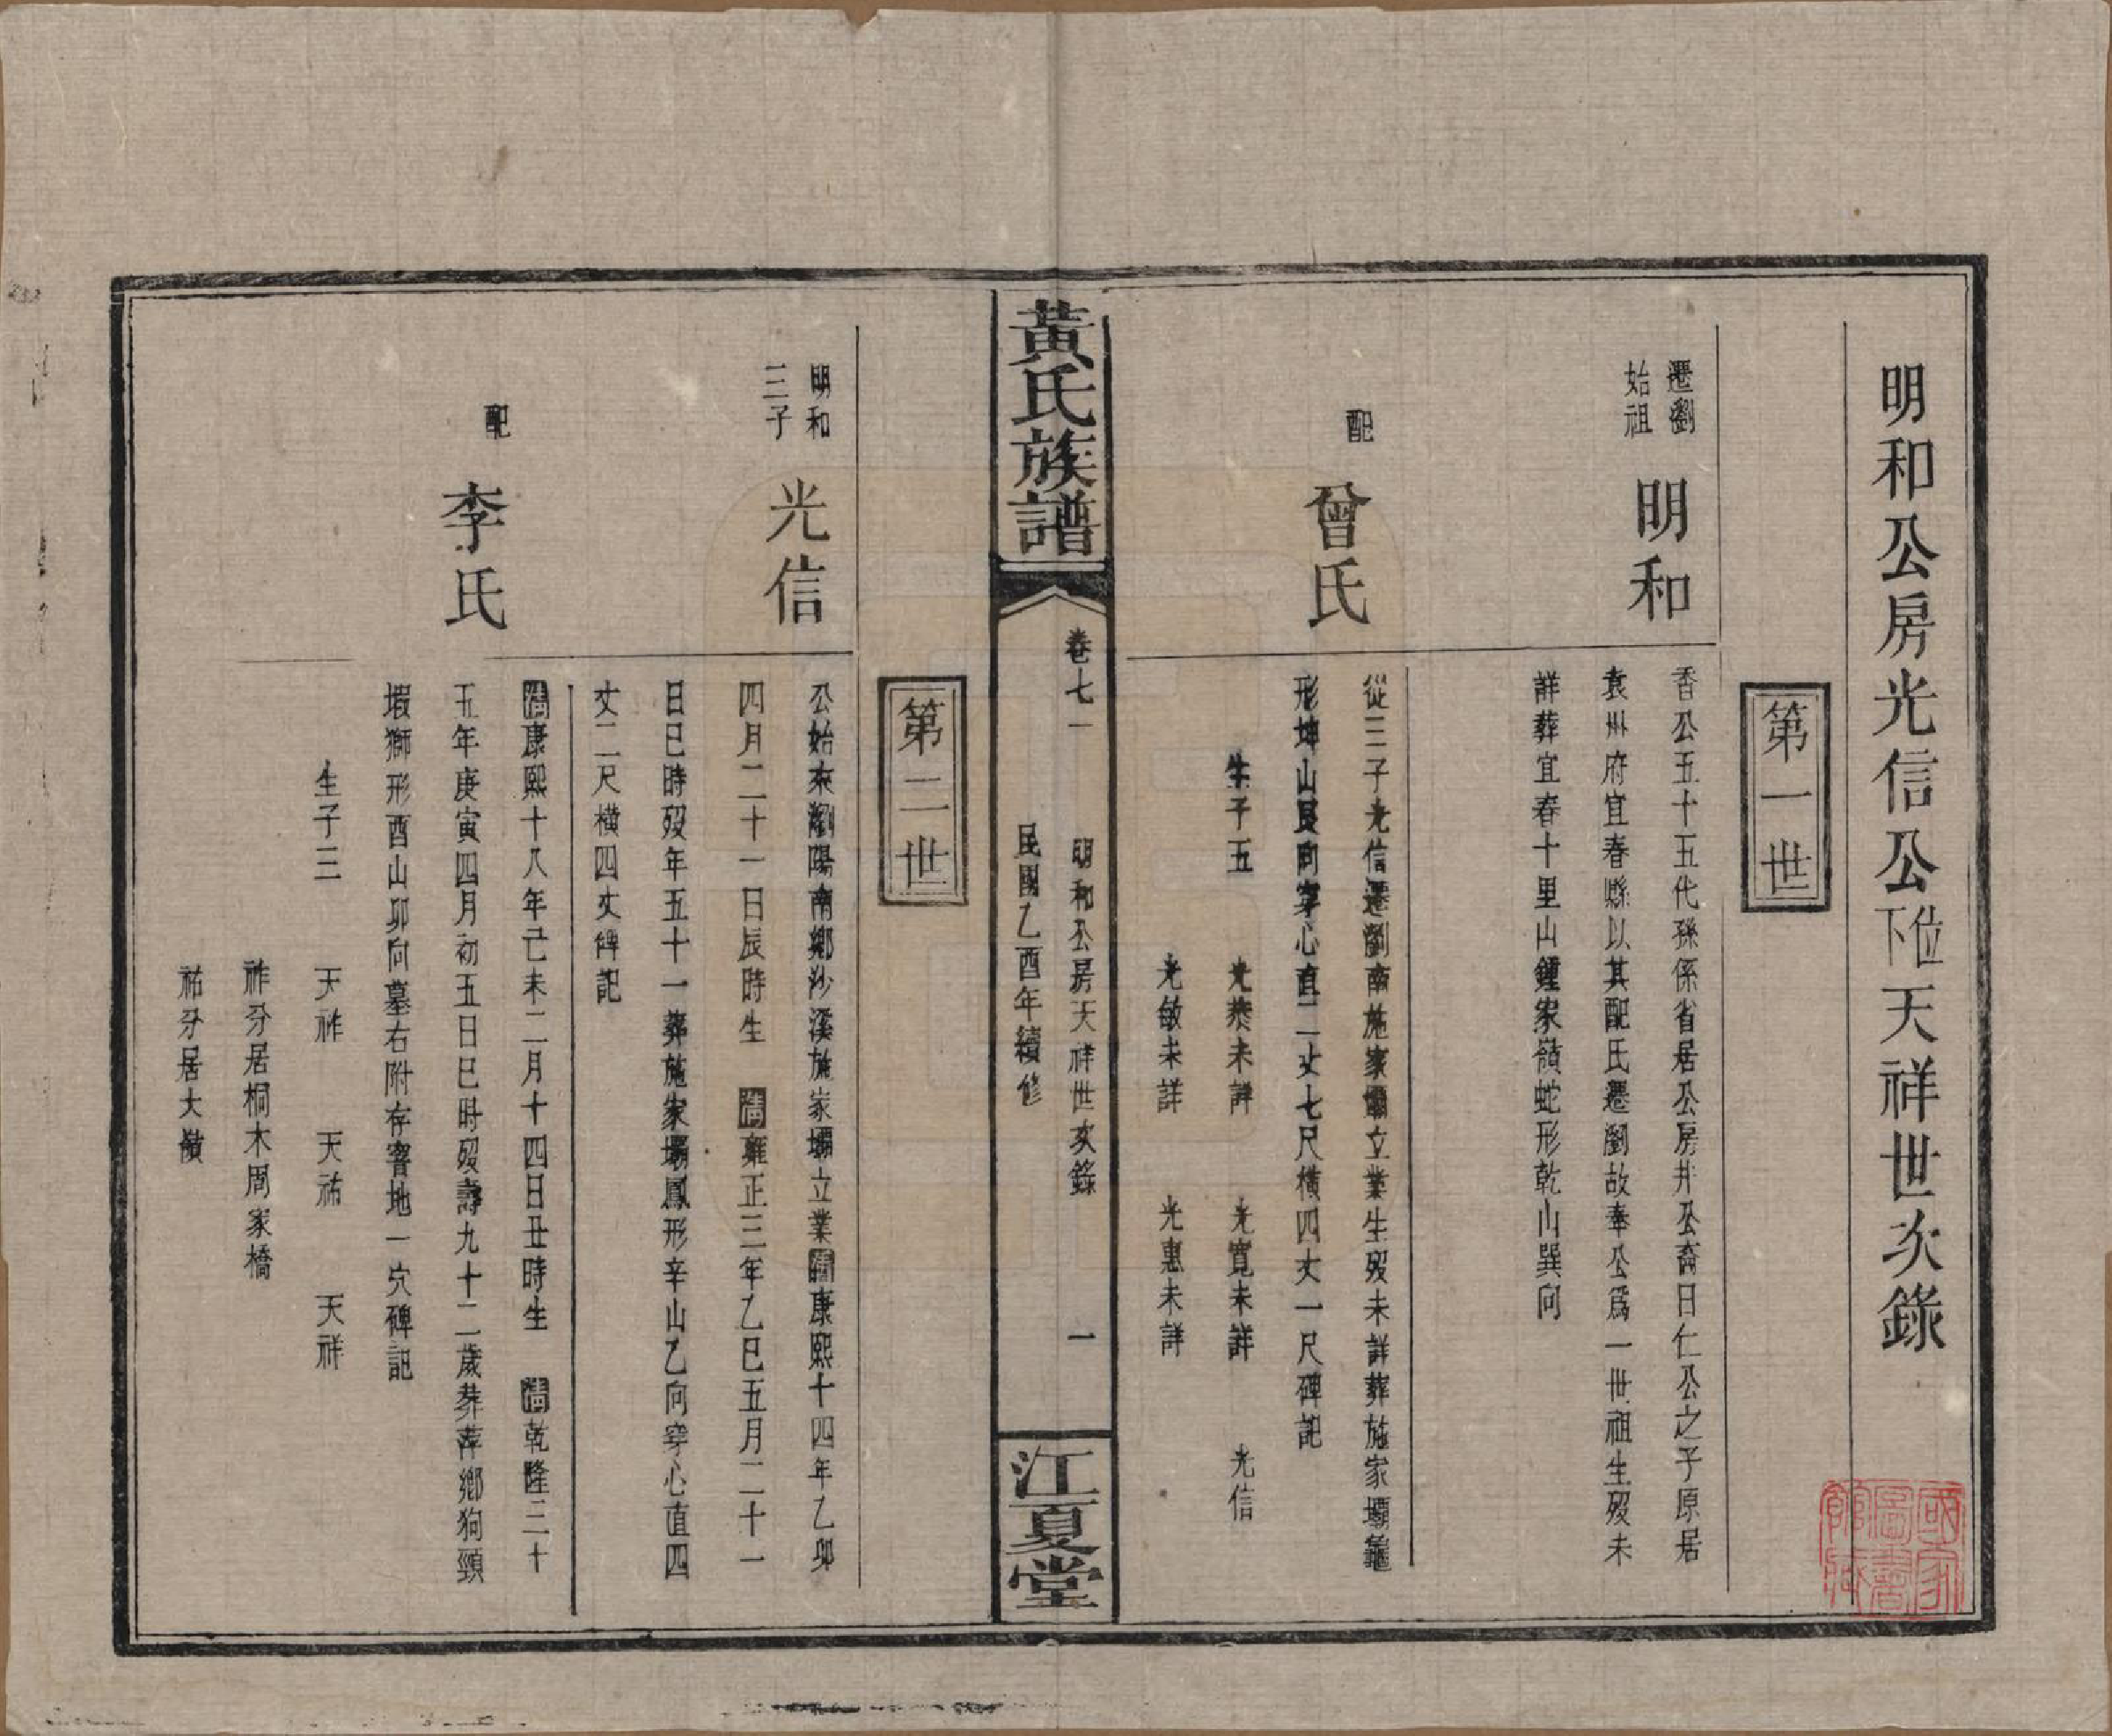 明和公房光信公位下天祥世次錄
第一世
遷瀏
始祖
明和
香公五十五代孫係省居公房井公裔日仁公之子原居
袁州府宜春縣以其配氏遷瀏故奉公爲一世祖生歿未
詳葬宜春十里山鍾家嶺蛇形乾山巽向
配
曾氏
從三子光信遷瀏南施家壩立業生歿未詳葬施家壩龜
形坤山艮向穿心直二丈七尺橫四丈一尺碑記
生子五 光恭未詳 光寬未詳 光信
光敏未詳 光惠未詳
黃氏族譜
卷七一 明和公房天祥世次錄 一
民國乙酉年續修
江夏堂
第二世
明和
三子
光信
公始來瀏陽南鄉沙溪施家壩立業清康熙十四年乙卯
四月二十一日辰時生 清雍正三年乙巳五月二十一
日巳時歿年五十一葬施家壩鳳形辛山乙向穿心直四
丈二尺橫四丈碑記
配
李氏
清康熙十八年己未二月十四日丑時生 清乾隆三十
五年庚寅四月初五日巳時歿壽九十二歲葬萍鄉狗頸
塅獅形酉山卯向墓右附存窨地一穴碑記
生子三 天祚 天祐 天祥
祚分居桐木周家橋
祐分居大嶺
國家
圖書
館藏